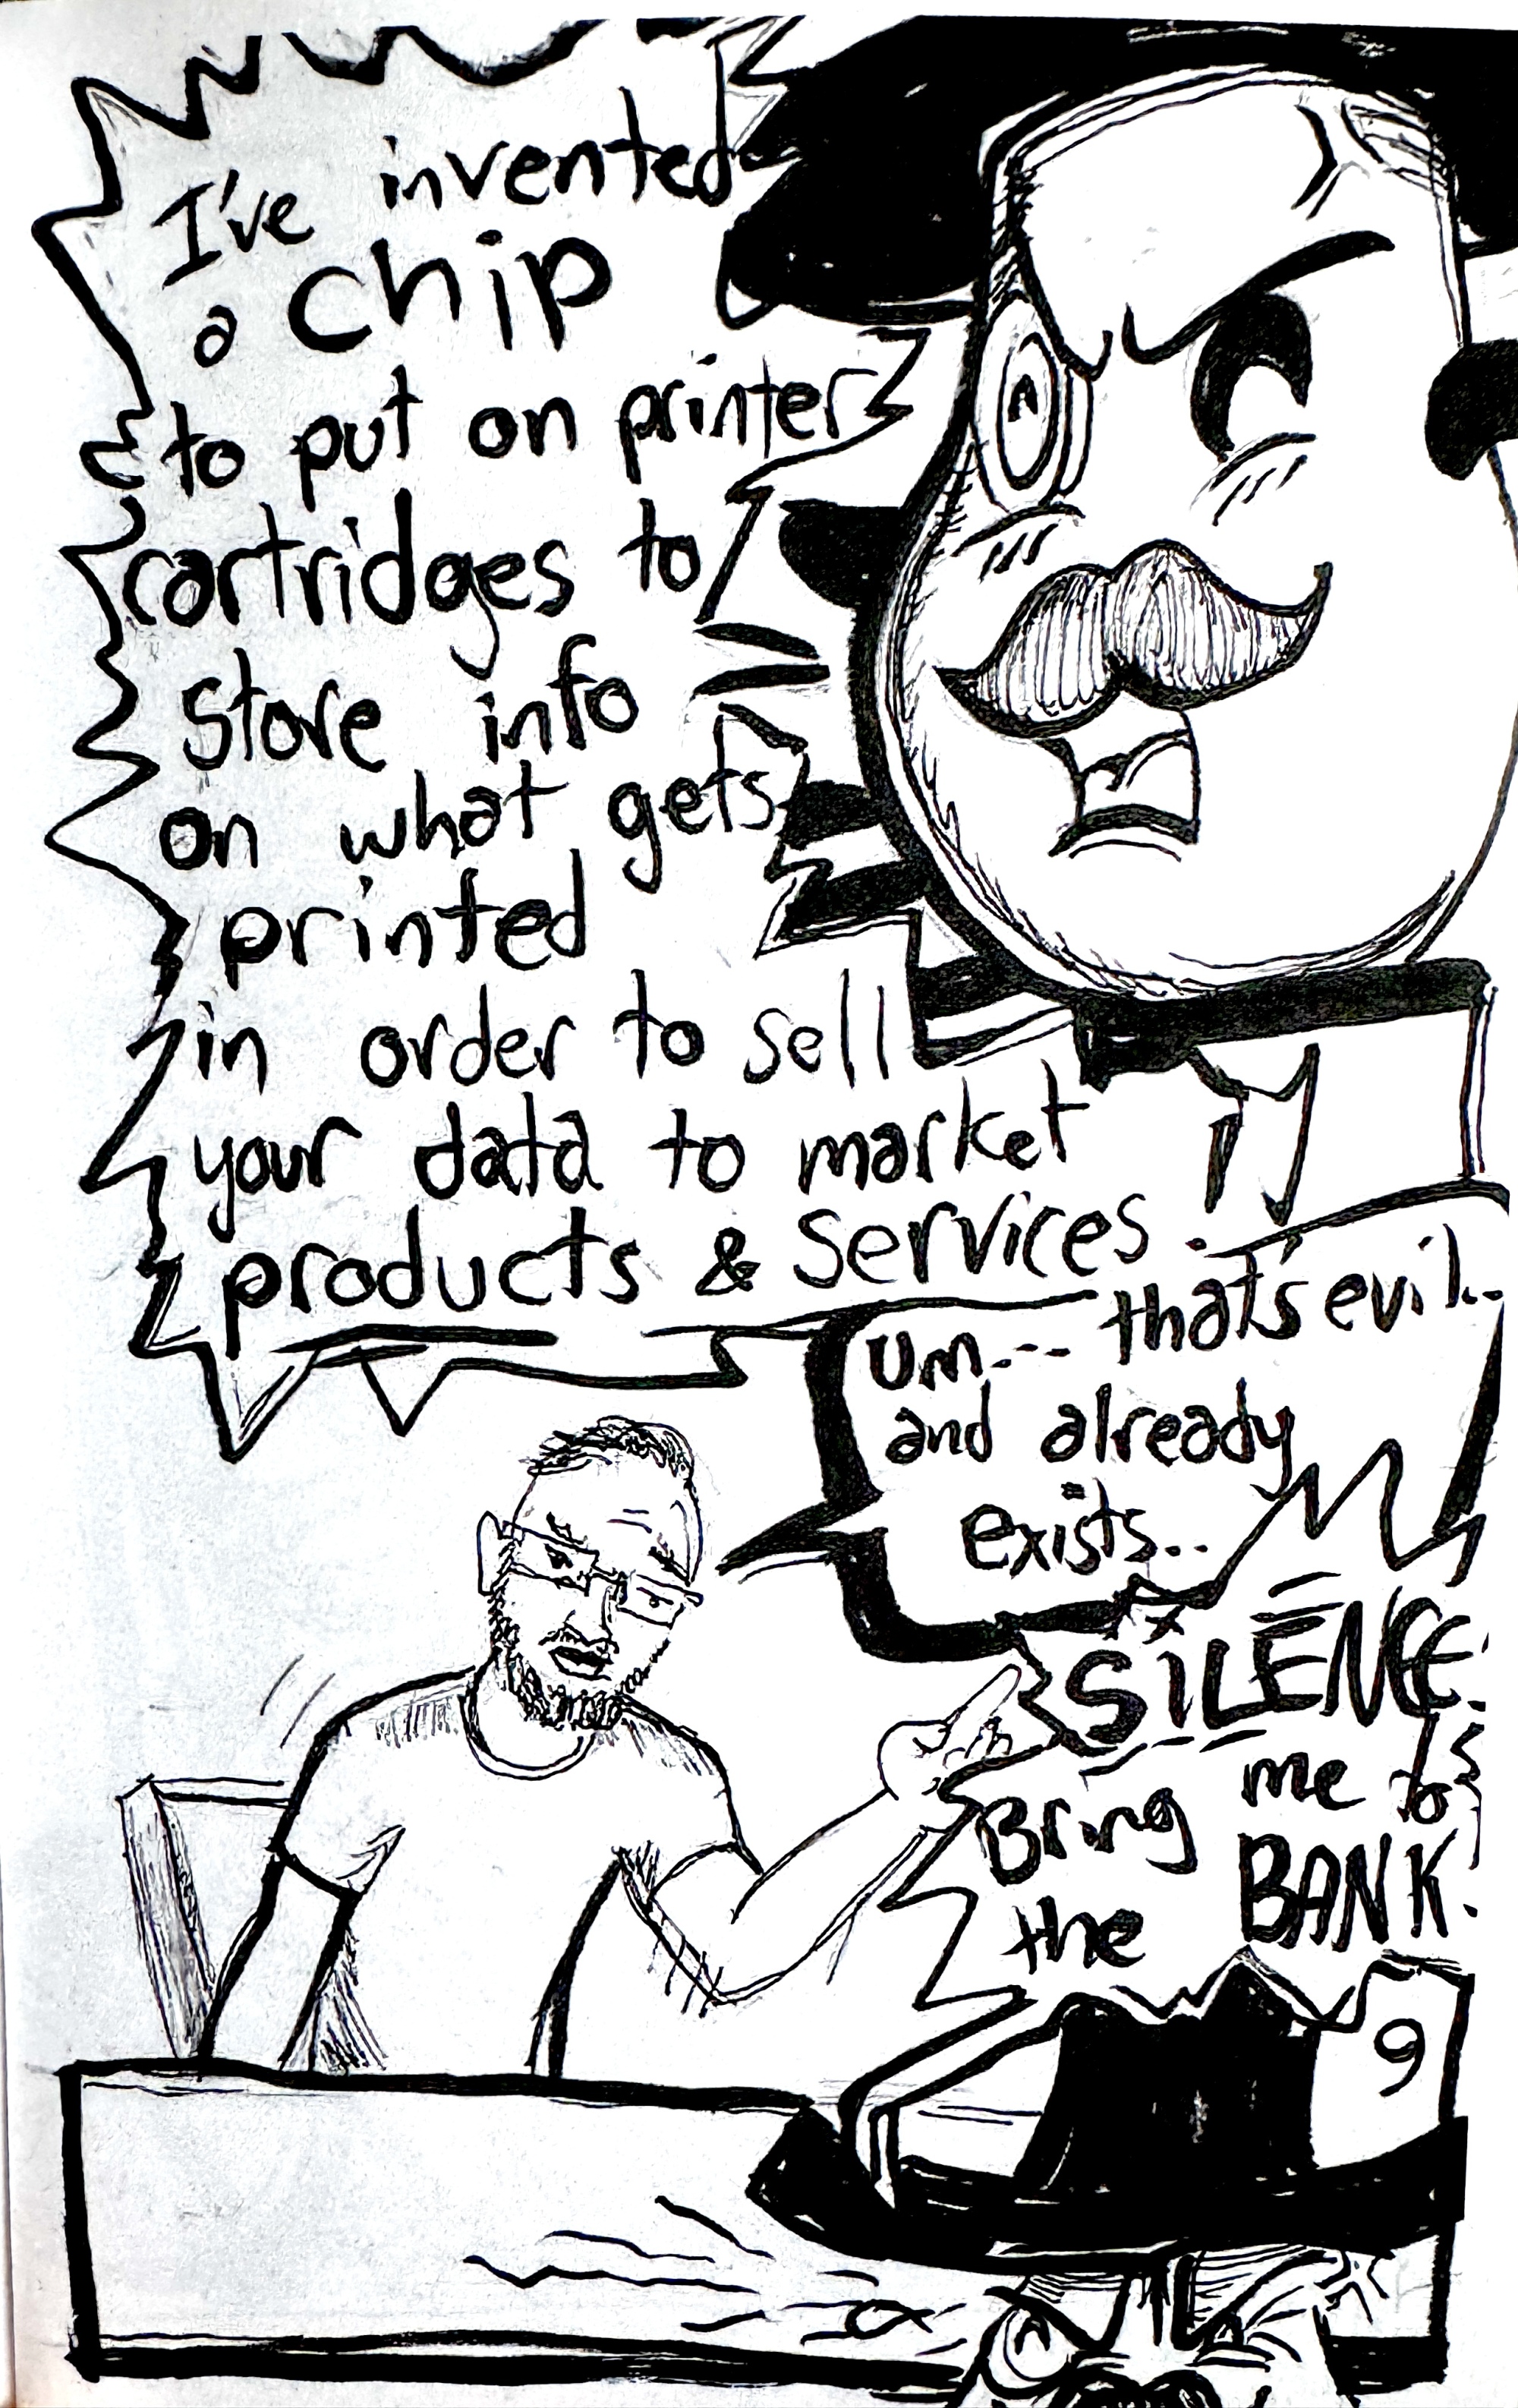 I've invented
a chip
to put on printer
cartridges to
store info
on what gets
printed
in order to sell
your data to market
products & services.
um... that's evil..
and already
exists..
SILENCE.
Bring me to
the BANK.
9